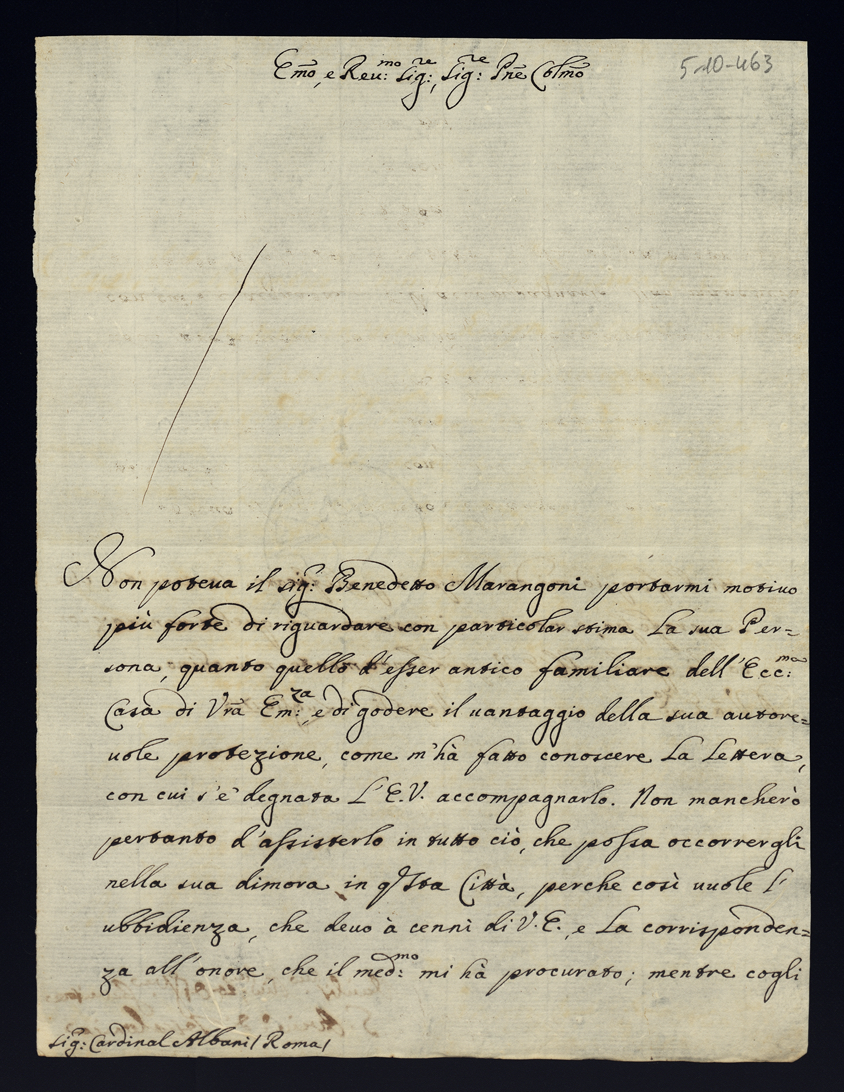 5-10-463
Em̃o, e Reu:mo Sig:re, Sig:re Pñe Colm̃o
Non poteua il Sig:r Benedetto Marangoni portarmi motiuo
più forte di riguardare con particolar stima La sua Per=
sona, quanto quello d'esser antico familiare dell'Ecc:ma
Casa di Vrã Em:za, e di godere il uantaggio della sua autore=
uole protezione, come m'hà fatto conoscere La Lettera,
con cui s'è degnata L'E.V. accompagnarlo. Non mancherò
pertanto d'assisterlo in tutto ciò, che possa occorrergli
nella sua dimora in qsta Città, perche così uuole l'
ubbidienza, che deuo à cenni di V.E., e La corrisponden=
za all'onore, che il med:mo mi hà procurato; mentre cogli
Sig:r Cardinal Albani / Roma /